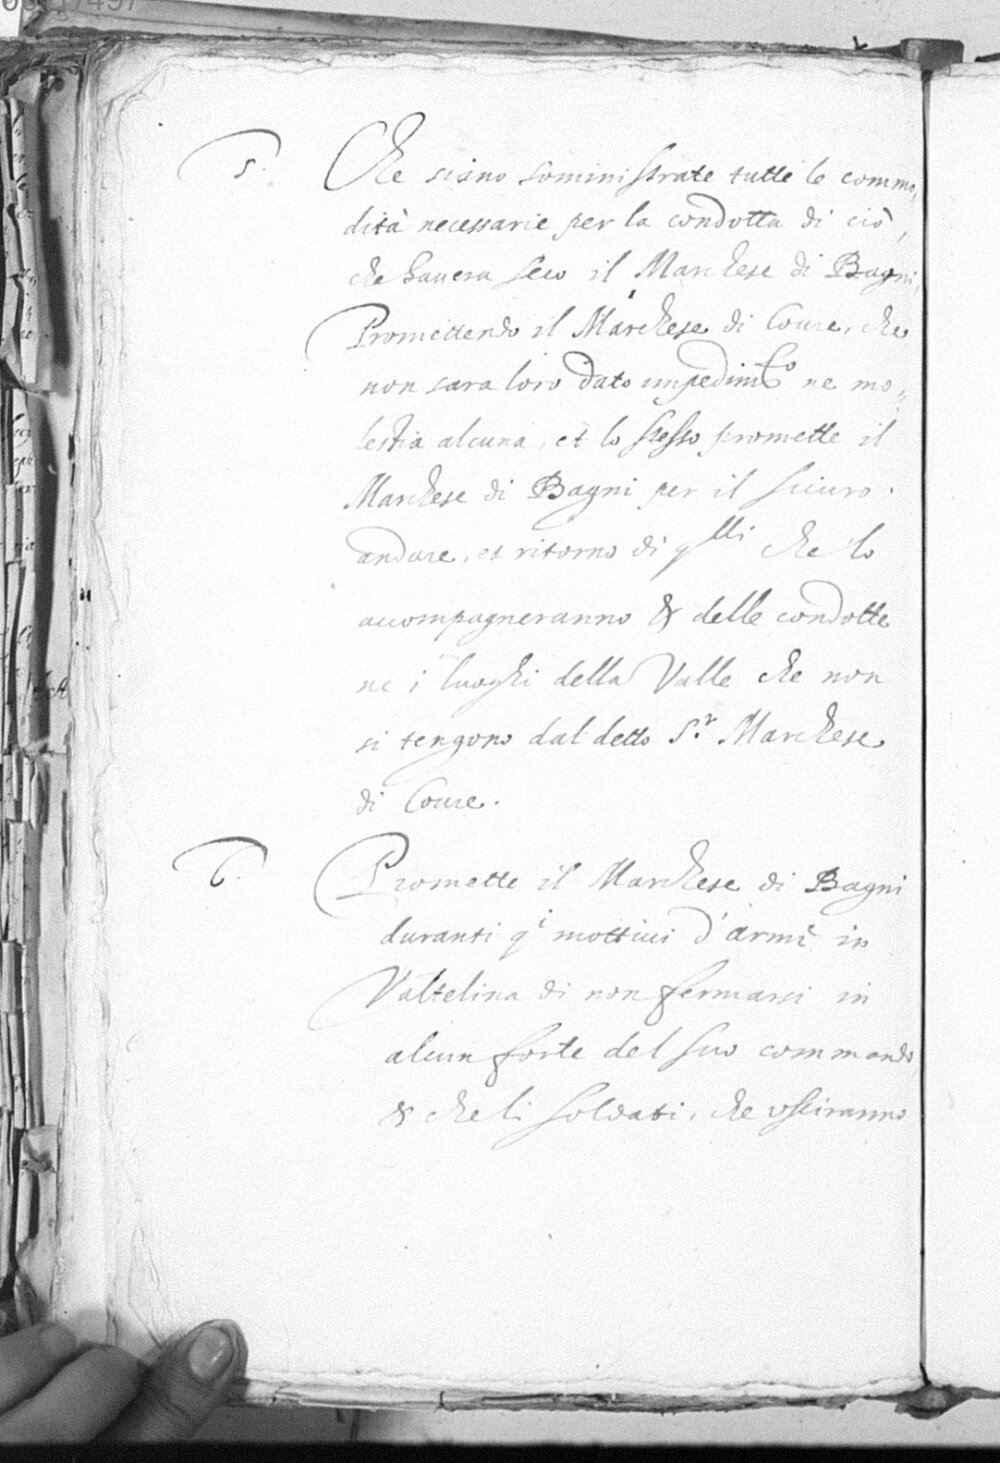 5. Che siano somministrate tutte le commo,
dità necessarie per la condotta di ciò,
che hauera seco il Marchese di Bagni,
Promettendo il Marchese di Couure, che
non sara loro dato impedimto ne mo,
lestia alcuna, et lo stesso promette il
Marchese di Bagni per il sicuro
andare, et ritorno di qlli che lo
accompagneranno & delle condotte
ne i luoghi della Valle che non
si tengono dal detto Sr. Marchese
di Couure.
6. Promette il Marchese di Bagni
duranti qi mottiui d'armi in
Valtelina di non fermarsi in
alcun forte del suo commando
& che li soldati, che usciranno